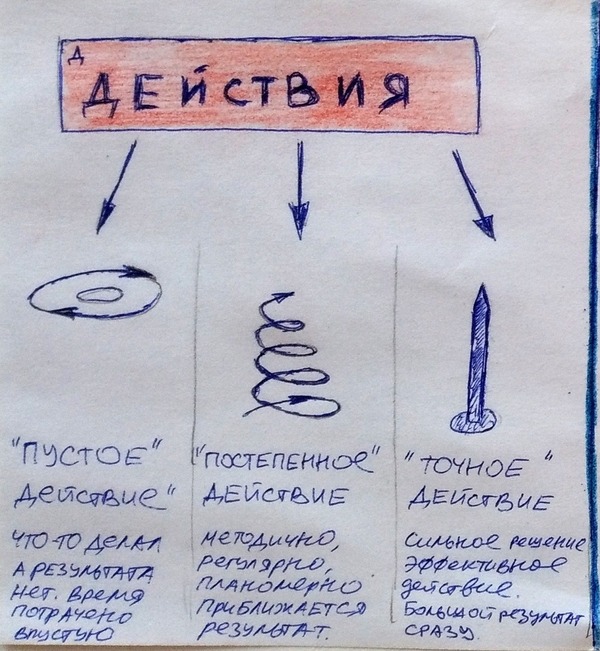 Д
ДЕЙСТВИЯ
"ПУСТОЕ"
действие"
ЧТО-ТО ДЕЛАЛ
А РЕЗУЛЬТАТА
НЕТ. ВРЕМЯ
ПОТРАЧЕНО
ВПУСТУЮ
"ПОСТЕПЕННОЕ"
ДЕЙСТВИЕ
МЕТОДИЧНО,
РЕГУЛЯРНО,
ПЛАНОМЕРНО
ПРИБЛИЖАЕТСЯ
РЕЗУЛЬТАТ.
"ТОЧНОЕ"
ДЕЙСТВИЕ
СИЛЬНОЕ решение
ЭФФЕКТИВНОЕ
действие.
БОЛЬШОЙ РЕЗУЛЬТАТ
СРАЗУ.